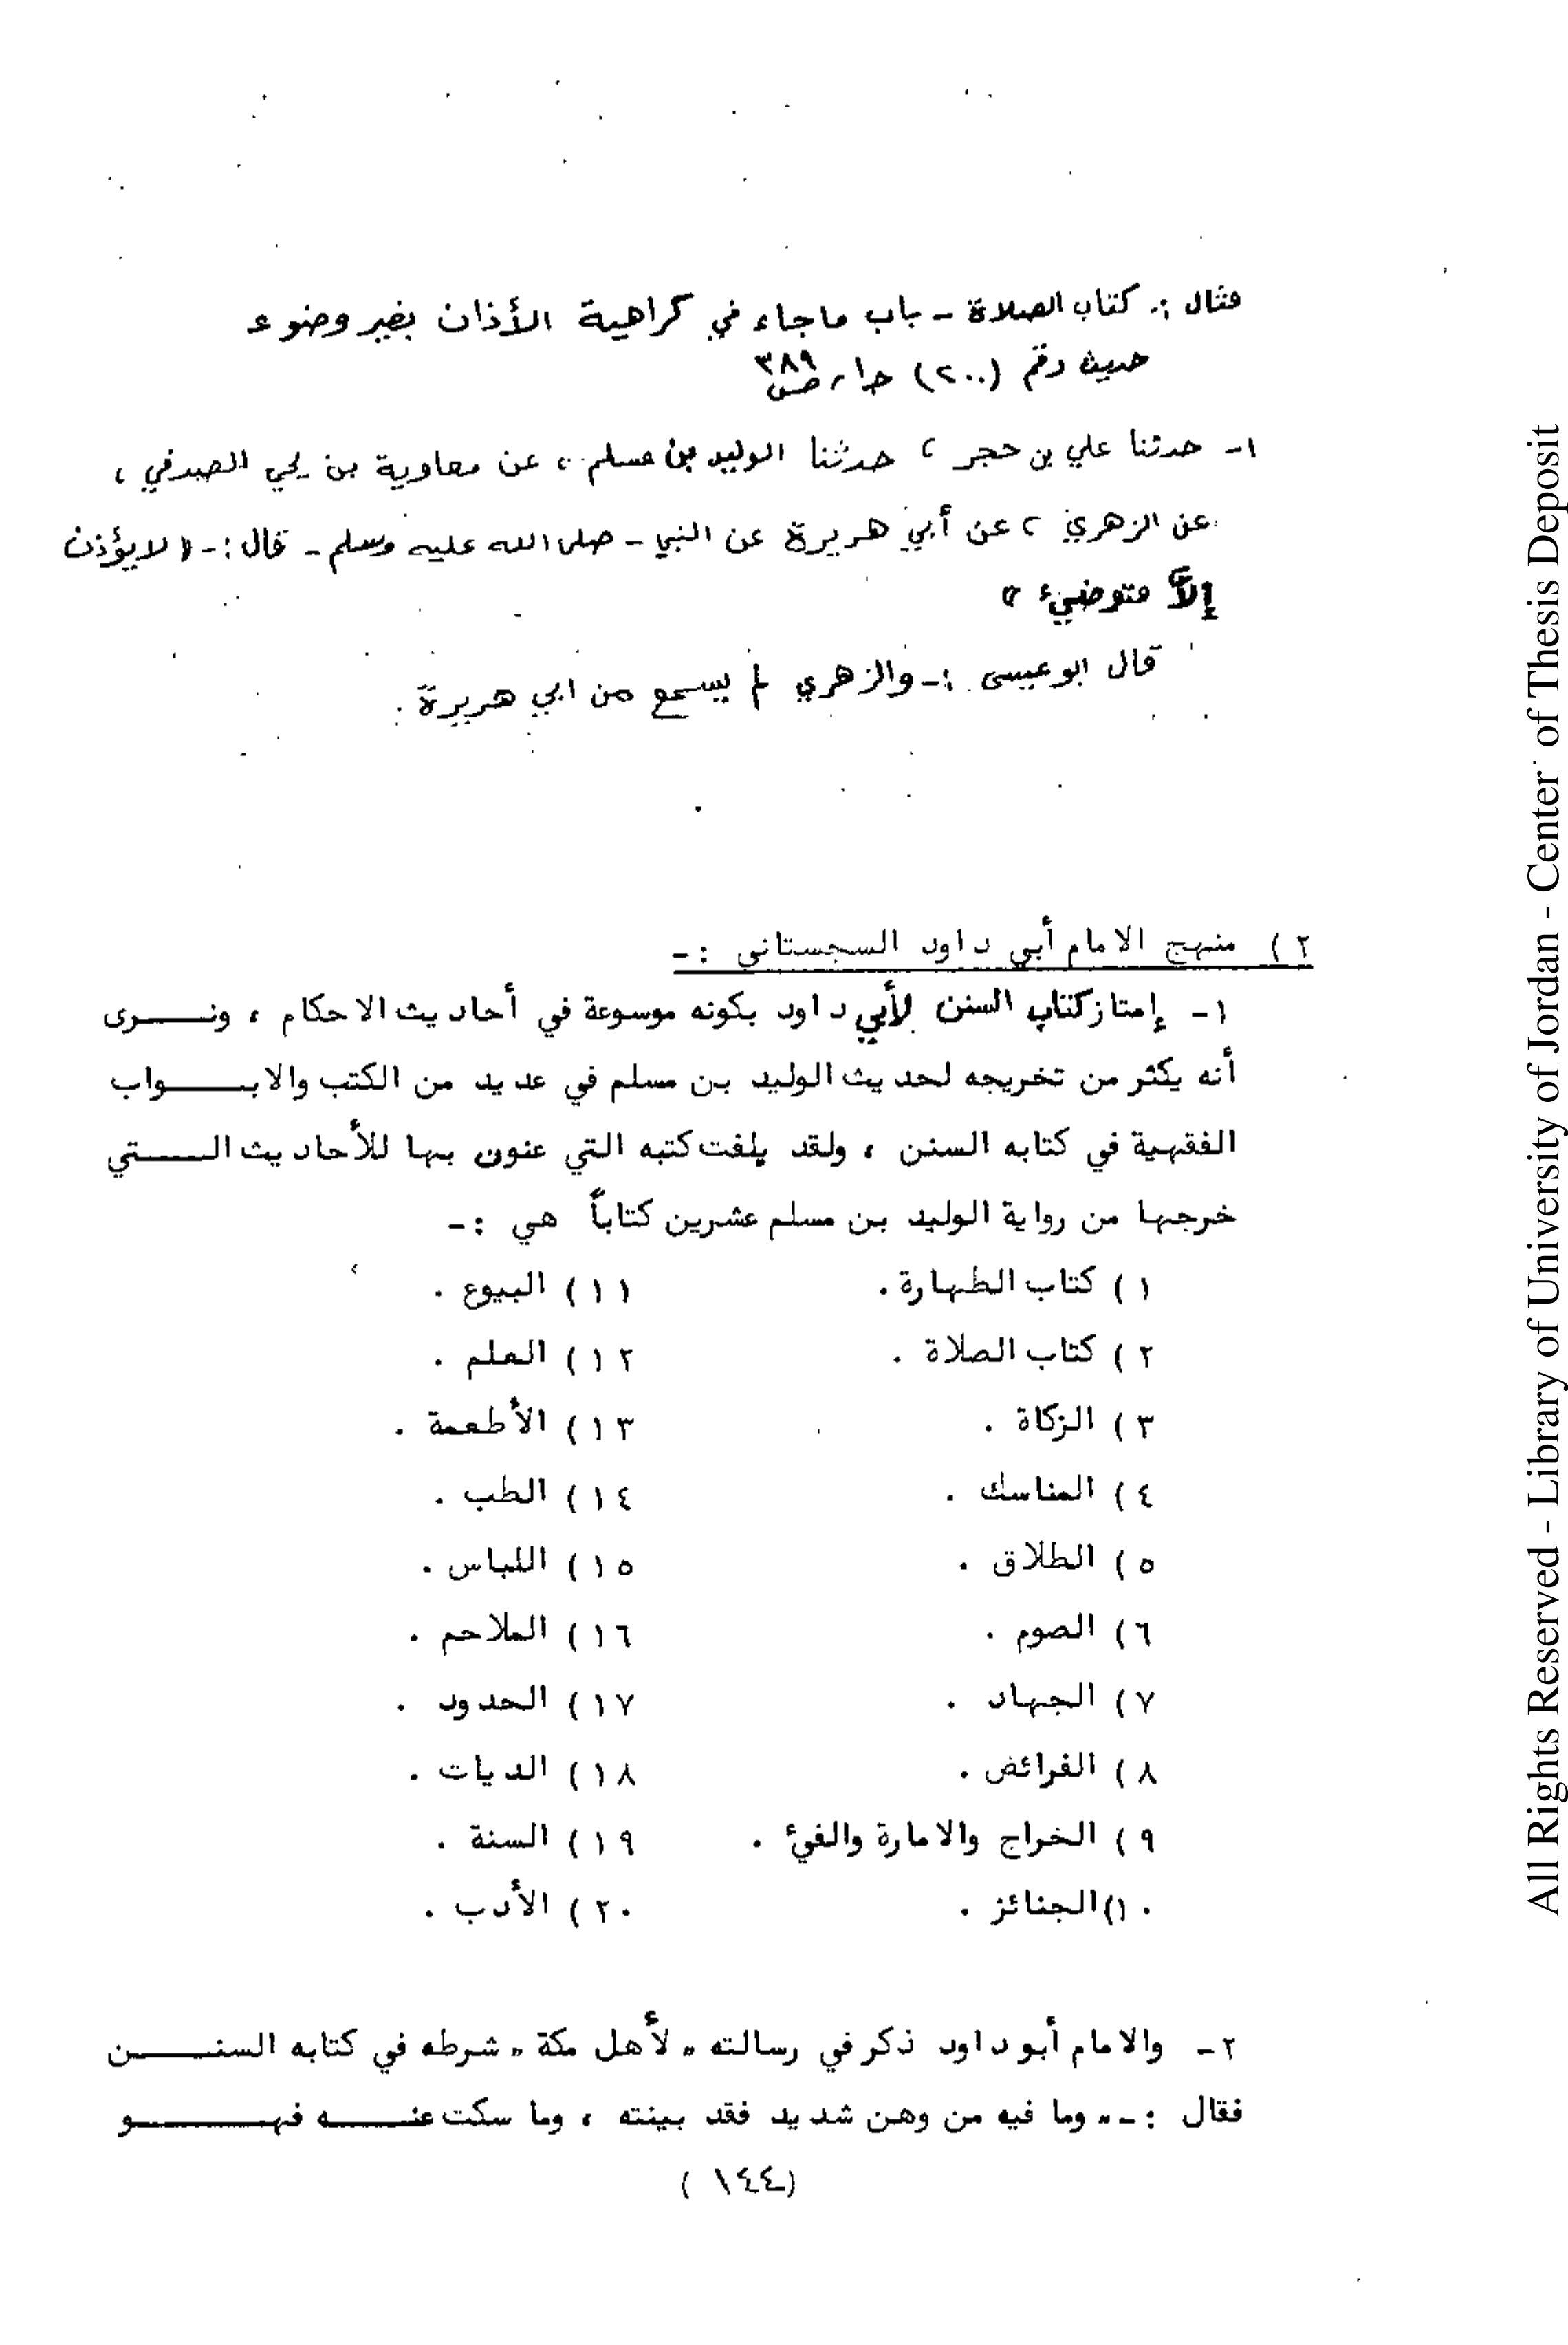 مثال :. كتاب الصلاة - باب ماجاء في كراهية الأذان بغير وضوء
حديث رقم (٢٠٠) جـ١، ص٣٨٩
١- حدثنا علي بن حجر ، حدثنا الوليد بن مسلم ، عن معاوية بن يحيى الصدفي ،
عن الزهري ، عن أبي هريرة عن النبي - صلى الله عليه وسلم - قال :- « لا يؤذن
إلاَّ متوضيء »
قال ابو عيسى :- والزهري لم يسمع من ابي هريرة .
٢ ) منهج الامام أبي داود السجستاني :-
١- إمتاز كتاب السنن لأبي داود بكونه موسوعة في أحاديث الاحكام ، ونـــرى
أنه يكثر من تخريجه لحديث الوليد بن مسلم في عديد من الكتب والابـــواب
الفقهية في كتابه السنن ، ولقد بلغت كتبه التي عنون بها للأحاديث الـــتي
خرجها من رواية الوليد بن مسلم عشرين كتاباً هي :-
١ ) كتاب الطهارة .
٢ ) كتاب الصلاة .
٣ ) الزكاة .
٤ ) المناسك .
٥ ) الطلاق .
٦ ) الصوم .
٧ ) الجهاد .
٨ ) الفرائض .
٩ ) الخراج والامارة والفيء .
١٠) الجنائز .
١١ ) البيوع .
١٢ ) العلم .
١٣ ) الأطعمة .
١٤ ) الطب .
١٥ ) اللباس .
١٦ ) الملاحم .
١٧ ) الحدود .
١٨ ) الديات .
١٩ ) السنة .
٢٠ ) الأدب .
٢- والامام أبو داود ذكر في رسالته " لأهل مكة " شرطه في كتابه السنـــن
فقال :- " وما فيه من وهن شديد فقد بينته ، وما سكت عنـــه فهـــو
(١٤٤ )
All Rights Reserved - Library of University of Jordan - Center of Thesis Deposit